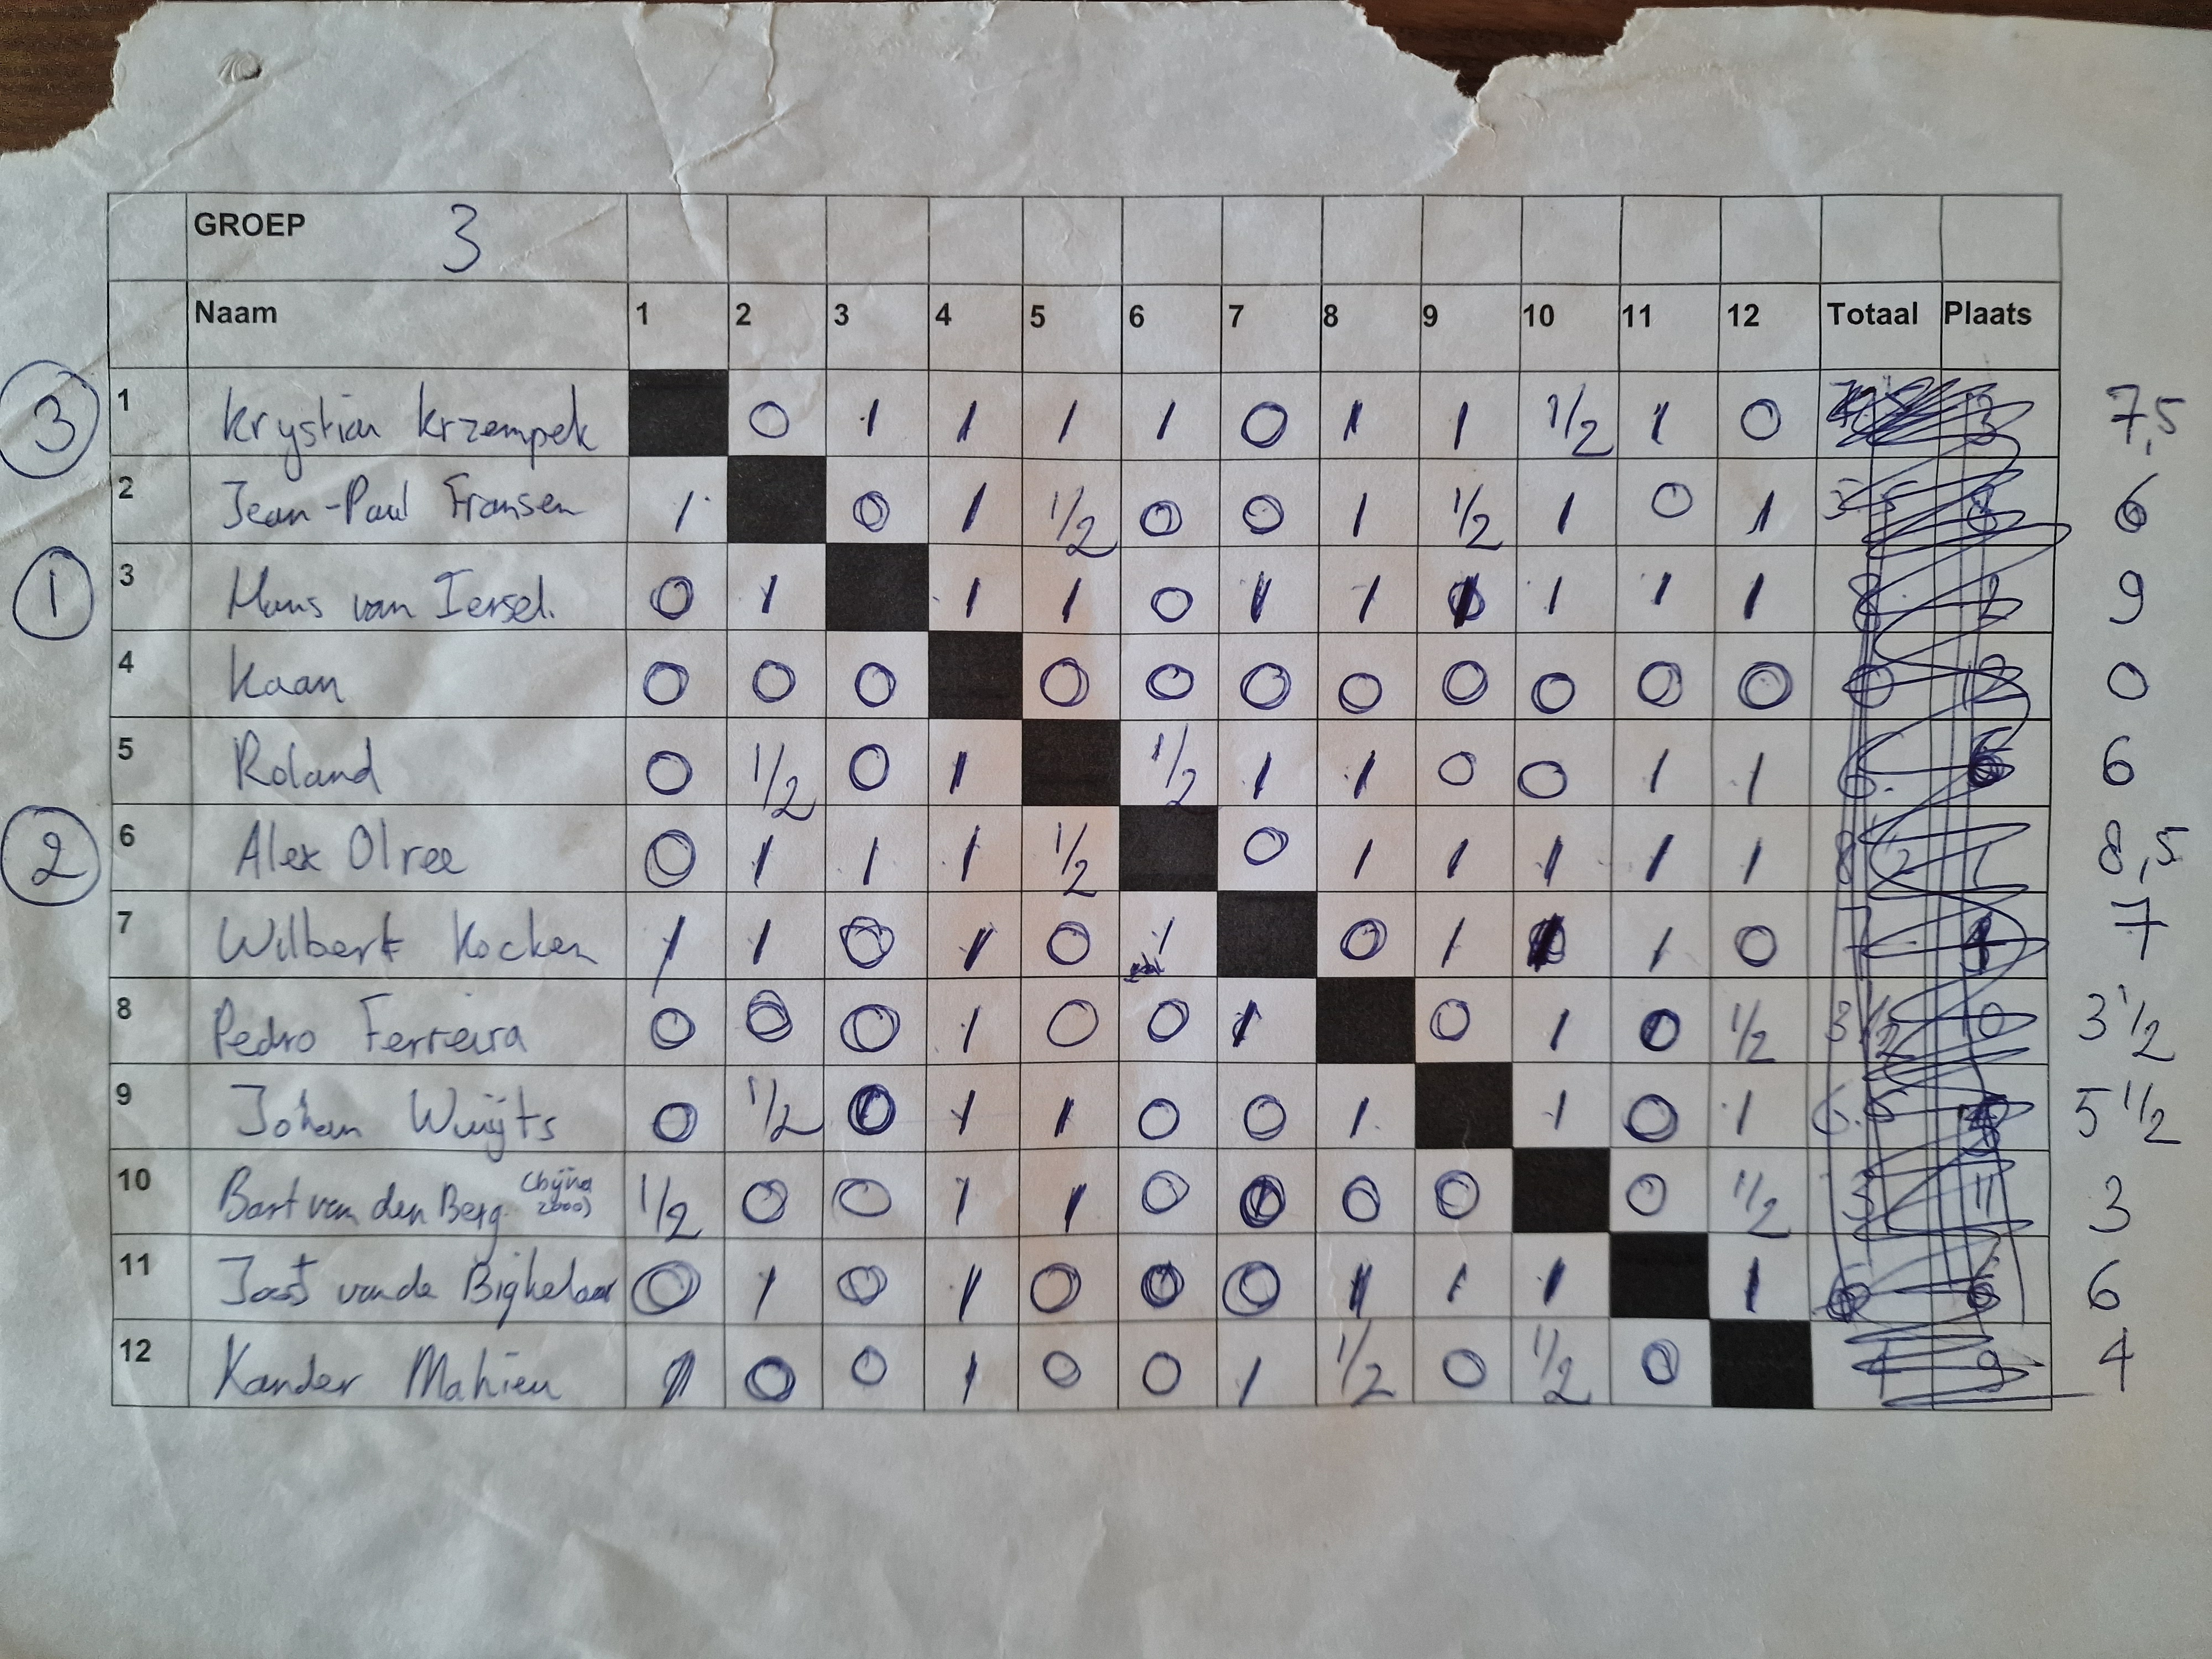 GROEP 3
Naam 1 2 3 4 5 6 7 8 9 10 11 12 Totaal Plaats
3 1 Krystian Krzempek 0 1 1 1 1 0 1 1 1/2 1 0 3 7,5
2 Jean-Paul Fransen 1 0 1 1/2 0 0 1 1/2 1 0 1 8 6
1 3 Hans van Iersel. 0 1 1 1 0 1 1 1 1 1 1 8 2 9
4 Kaan 0 0 0 0 0 0 0 0 0 0 0 0 12 0
5 Roland 0 1/2 0 1 1/2 1 1 0 0 1 1 6. 6 6
2 6 Alex Olree 0 1 1 1 1/2 0 1 1 1 1 1 8 1/2 1 8,5
7 Wilbert Kocken 1 1 0 1 0 1 0 1 1 1 0 7 7
8 Pedro Ferreira 0 0 0 1 0 0 1 0 1 0 1/2 3 1/2 10 3 1/2
9 Johan Wuijts 0 1/2 0 1 1 0 0 1 1 0 1 6.5 5 1/2
10 Bart van den Berg (bijna 2000) 1/2 0 0 1 1 0 0 0 0 0 1/2 3 11 3
11 Joost van de Bighelaar 0 1 0 1 0 0 0 1 1 1 1 6 6 6
12 Xander Mahieu 1 0 0 1 0 0 1 1/2 0 1/2 0 4 9 4